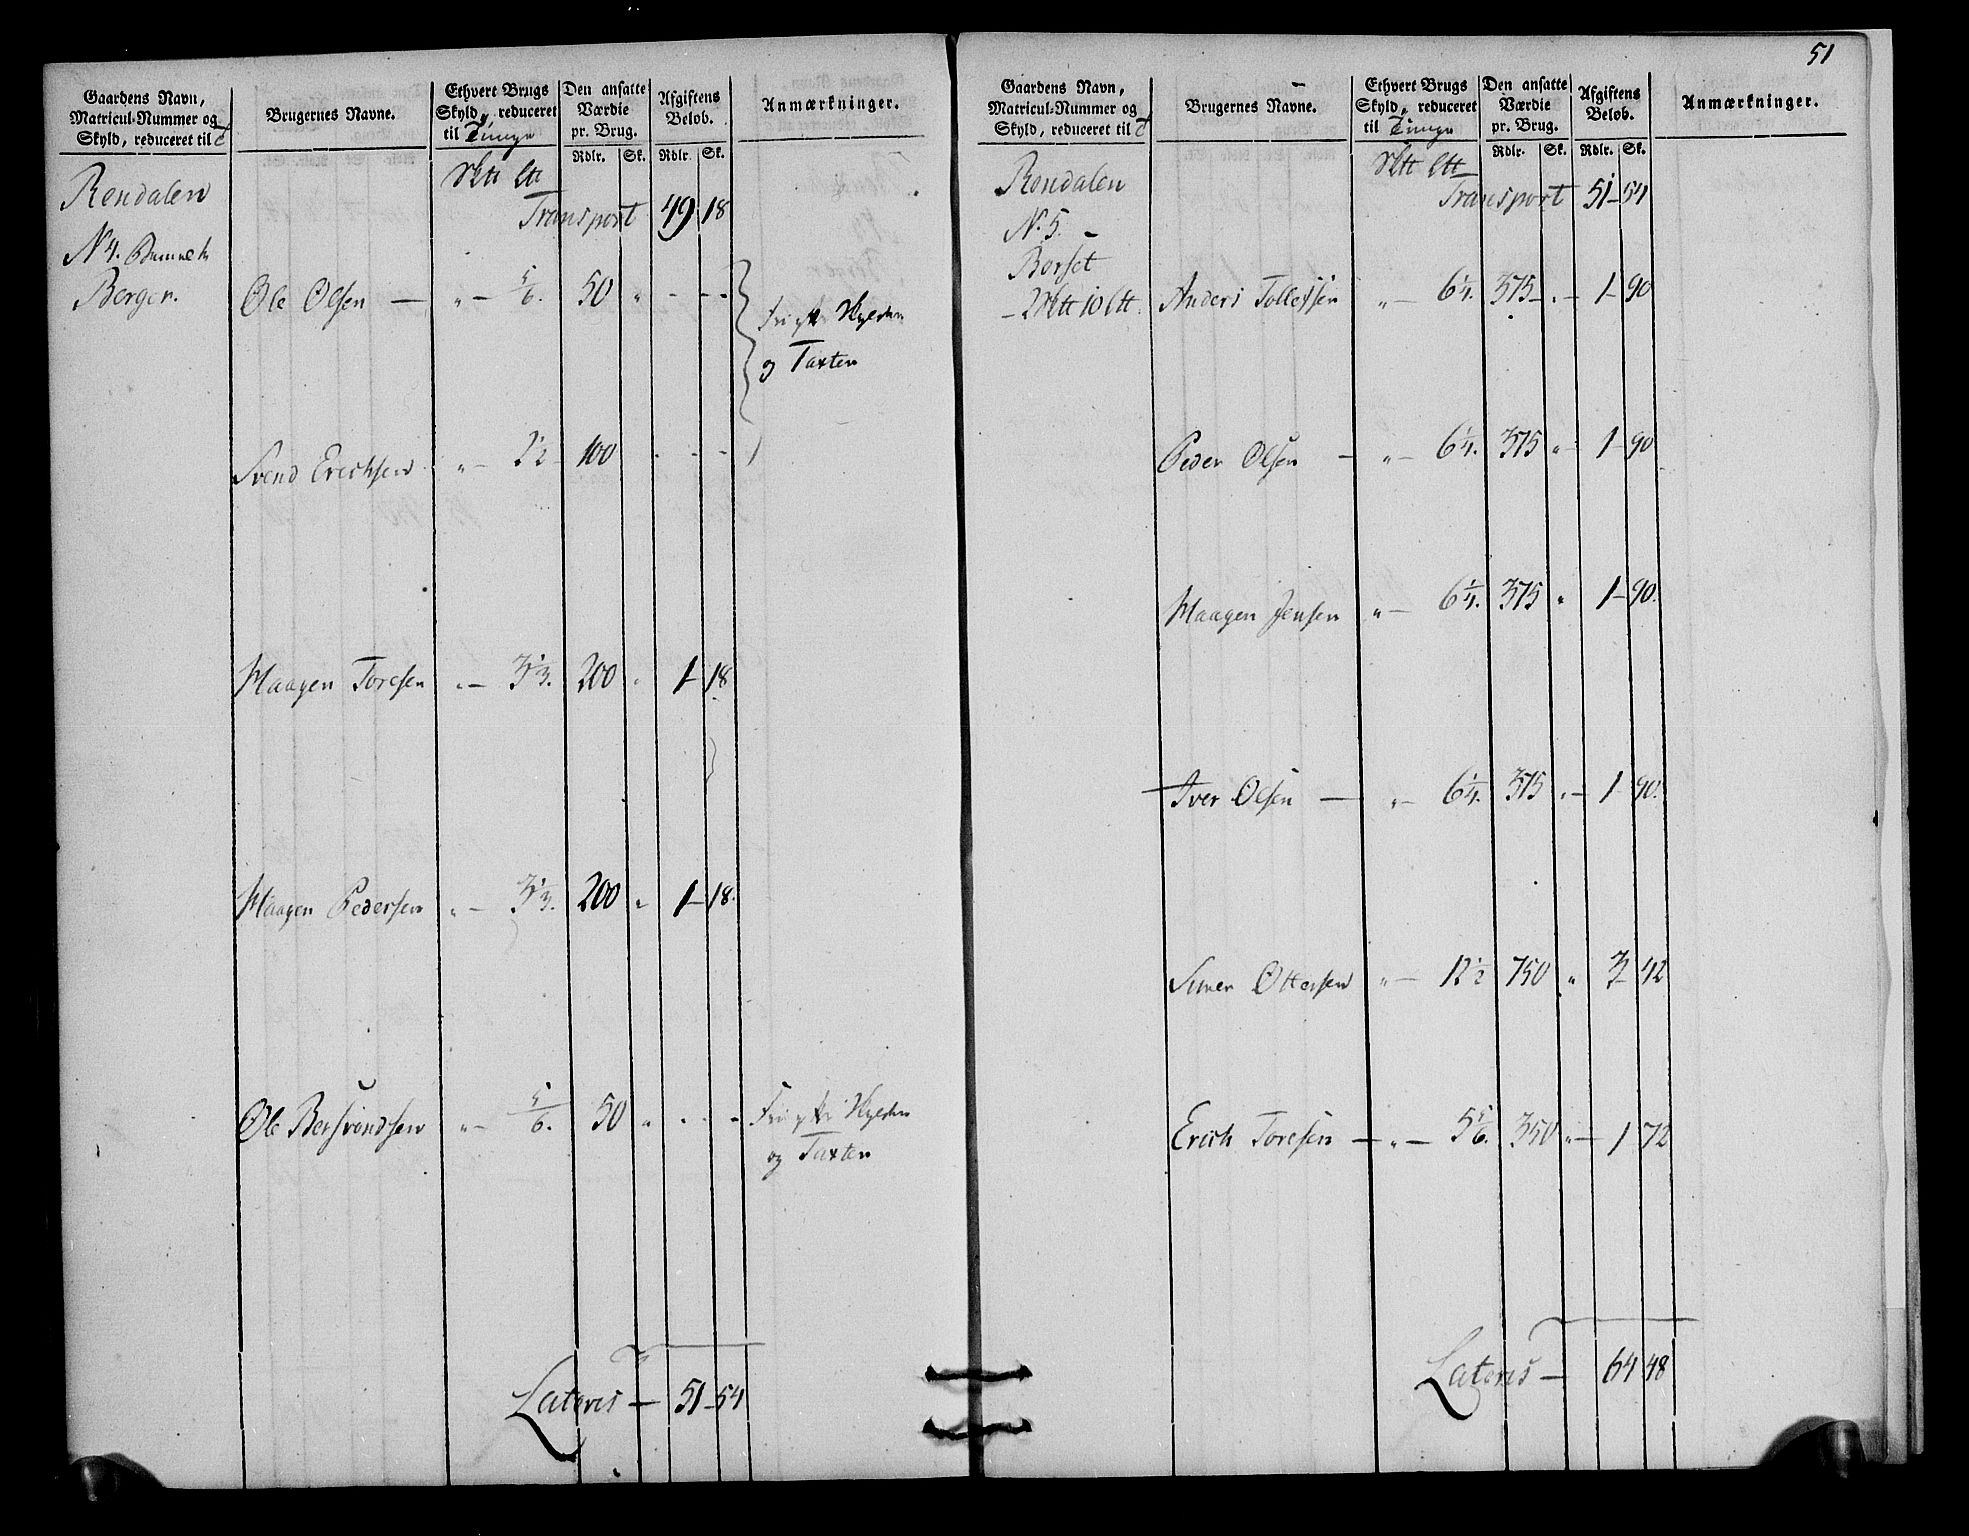 51
Gaardens Navn,
Matricul-Nummer og
Skyld, reduceret til
Brugernes Navne.
Ethvert Brugs
Skyld, reduceret
til Tunge
Den ansatte
Værdie
pr. Brug.
Rdlr. Sk.
Afgiftens
Beløb.
Rdlr. Sk.
Anmærkninger.
Rendalen
Transport 49 18
N 4.
Bergen.
Ole Olsen — „ — 5/6. 50 „ - - -
og Taxten
Svend Erichsen „ — 1½ 100 - - -
Haagen Toresen „ — 3⅓. 200 „ 1 - 18
Haagen Pedersen „ — 3⅓. 200 „ 1 - 18.
Ole Bersvendsen „ — 5/6. 50 „ - - -
og Taxten
Lateris — 51 - 54
Gaardens Navn,
Matricul-Nummer og
Skyld, reduceret til
Brugernes Navne.
Ethvert Brugs
Skyld, reduceret
til Tunge
Den ansatte
Værdie
pr. Brug.
Rdlr. Sk.
Afgiftens
Beløb.
Rdlr. Sk.
Anmærkninger.
Rendalen
Transport 51 - 54
N. 5.
Berset
Anders Tollefsen „ — 6¼. 375 - „ - 1 - 90
Peder Olsen — „ — 6¼. 375 „ 1 - 90
Haagen Jensen „ — 6¼. 375 „ 1 - 90.
Iver Olsen — „ — 6¼. 375 „ - 1 - 90.
Simen Ottersen „ — 12½ 750 „ 3 - 42
Erich Toresen — „ — 5 5/6. 350 „ - 1 72
Lateris — 64 48